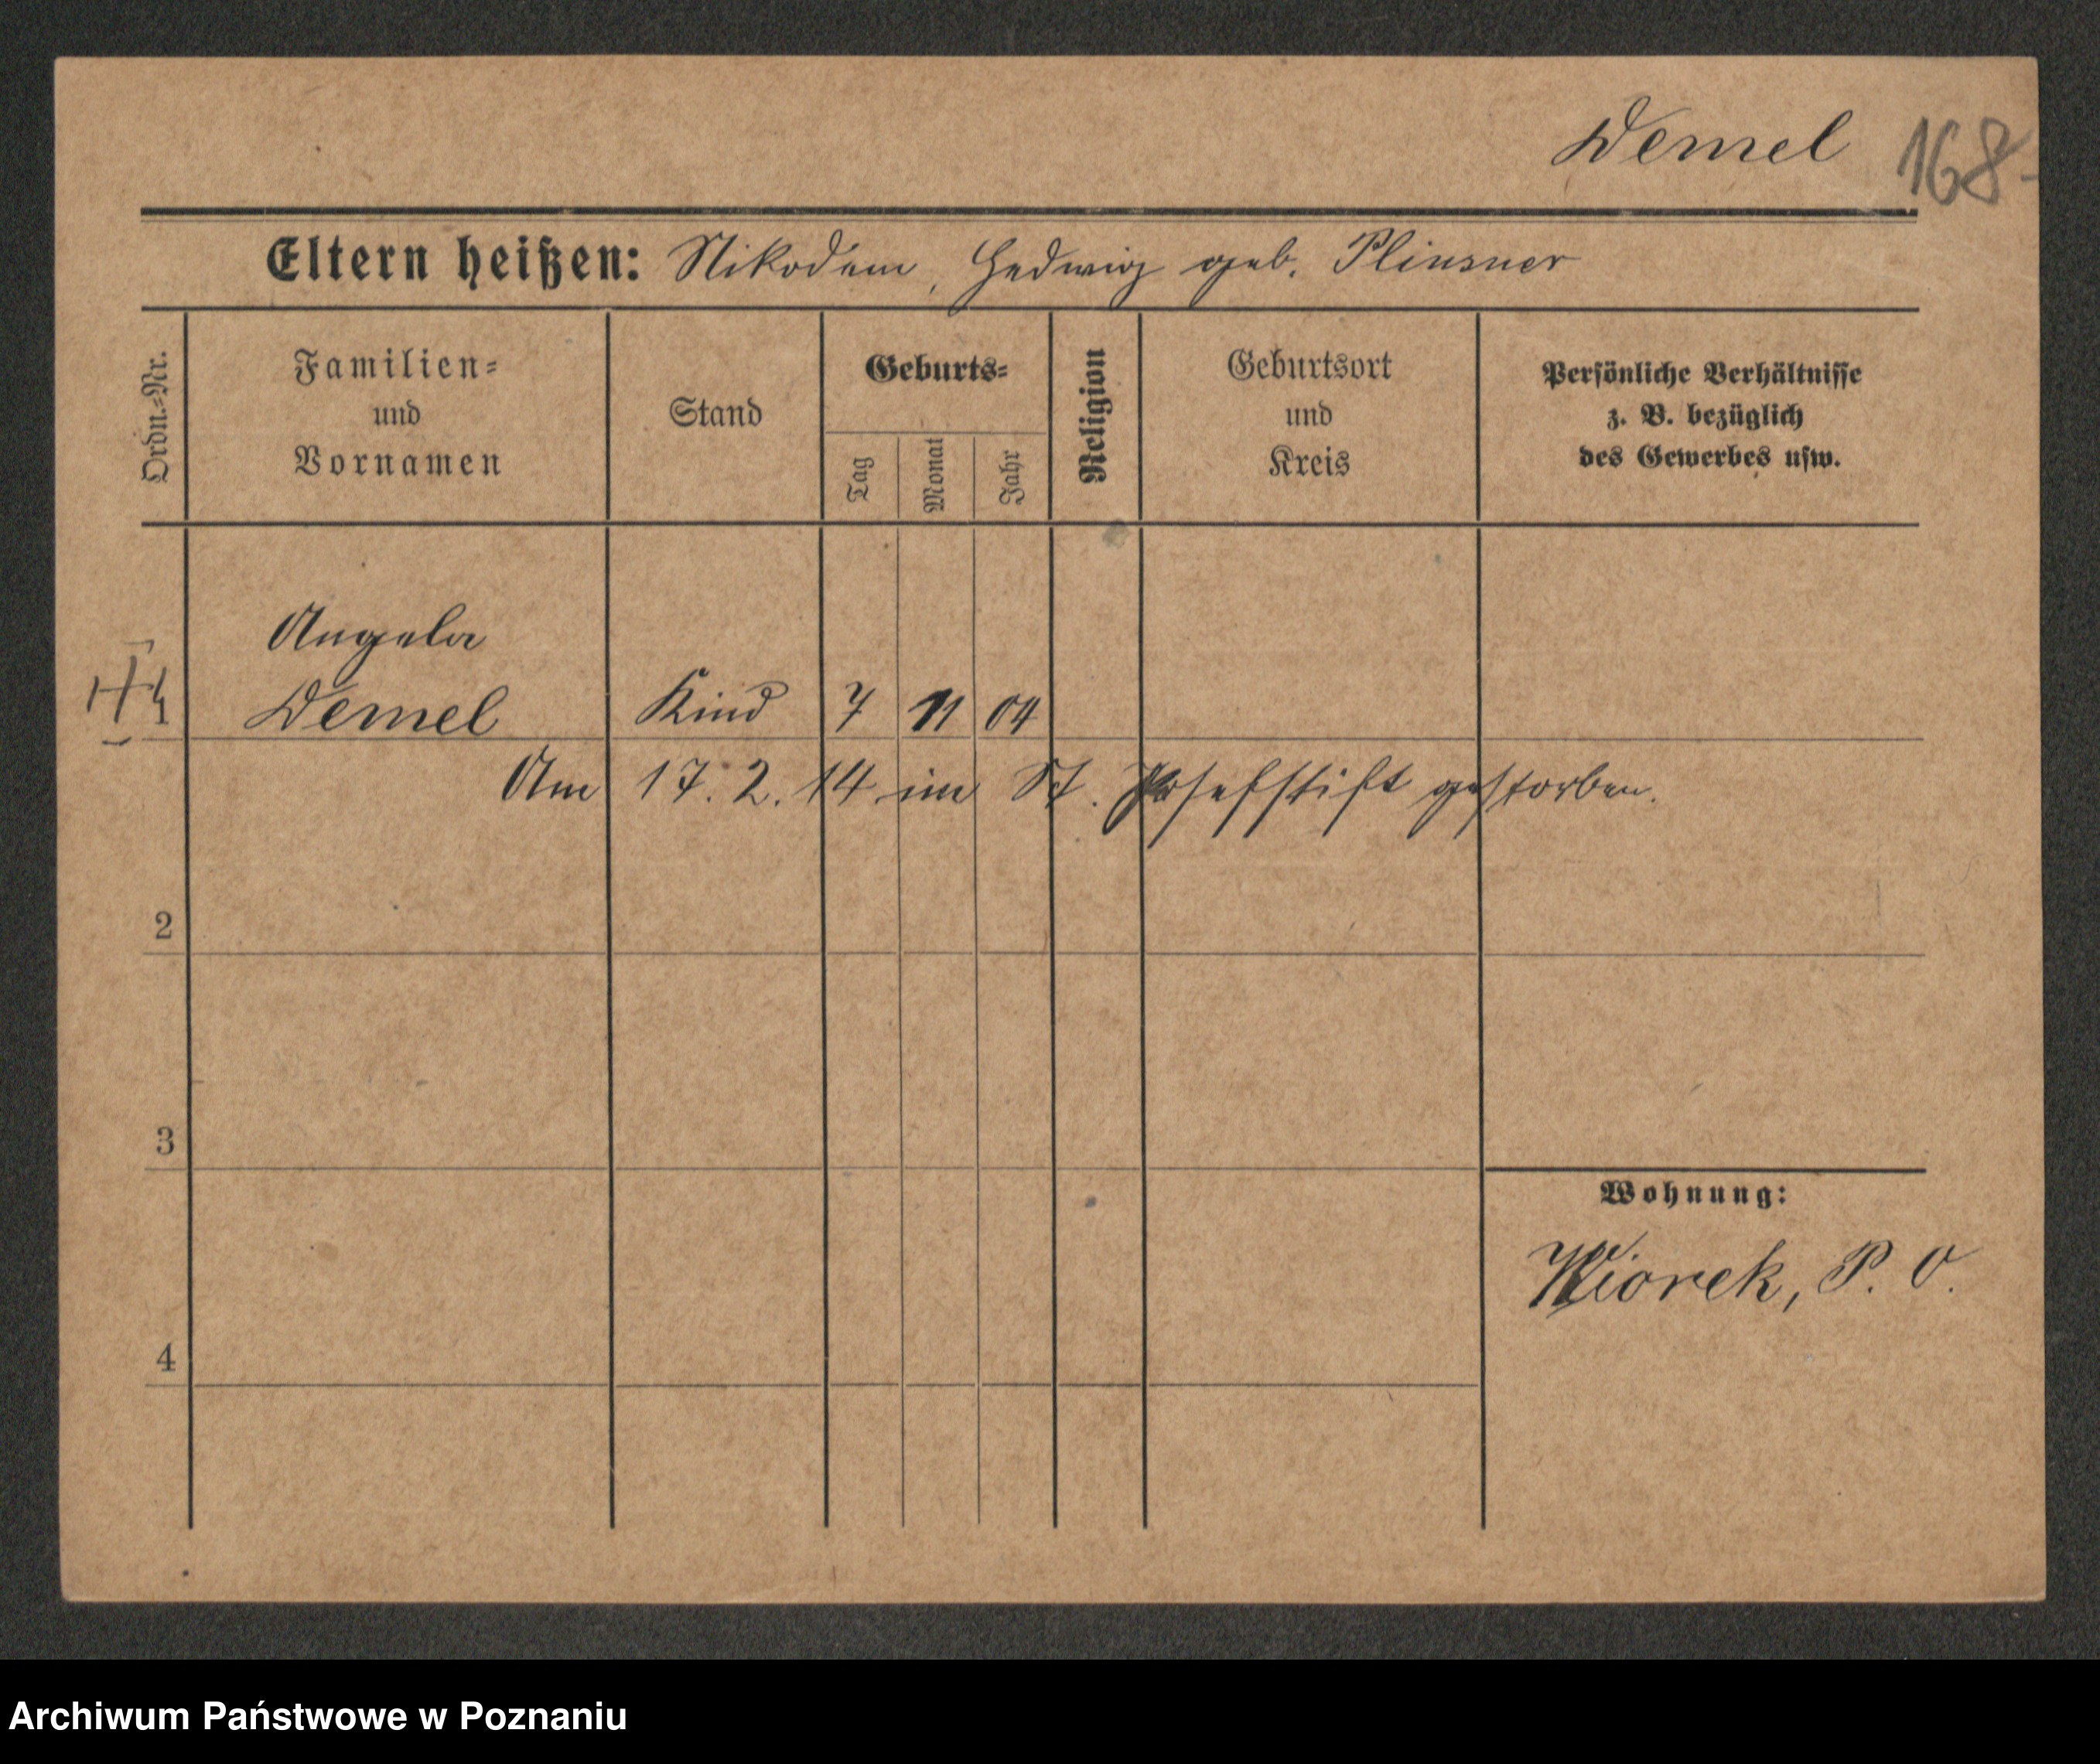 Demel 168-
Eltern heißen: Nikodem, Hedwig geb. Plinsner
Ordn.-Nr.
Familien-
und
Vornamen
Stand
Geburts-
Tag
Monat
Jahr
Religion
Geburtsort
und
Kreis
Persönliche Verhältnisse
z. B. bezüglich
des Gewerbes usw.
Angela
1 Demel Kind 7 11 04
Am 17. 2. 14 im St. Josefstift gestorben.
2
3
Wohnung:
Wiorek, P. O.
4
Archiwum Państwowe w Poznaniu